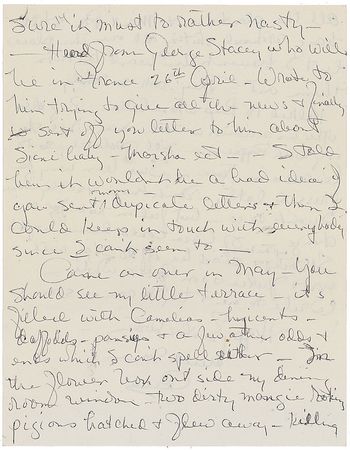 Sure it must to rather nasty -
- Heard from George Stacey who will
be in France 26th April - Wrote to
him trying to give all the news & finally
sent off you letter to him about
- Marsha set - - I told
him it wouldn't be a bad idea if
you sent mum duplicate letters & then I
could keep in touch with everybody
since I can't seem to -
Come on over in May - You
should see my little terrace - it's
filled with Camelias - hycents -
daffodils - pansys & a few other odds &
ends which I can't spell either - In
the flower box out side my dining
room window - two dirty mangie looking
pigions hatched & flew away - Killing